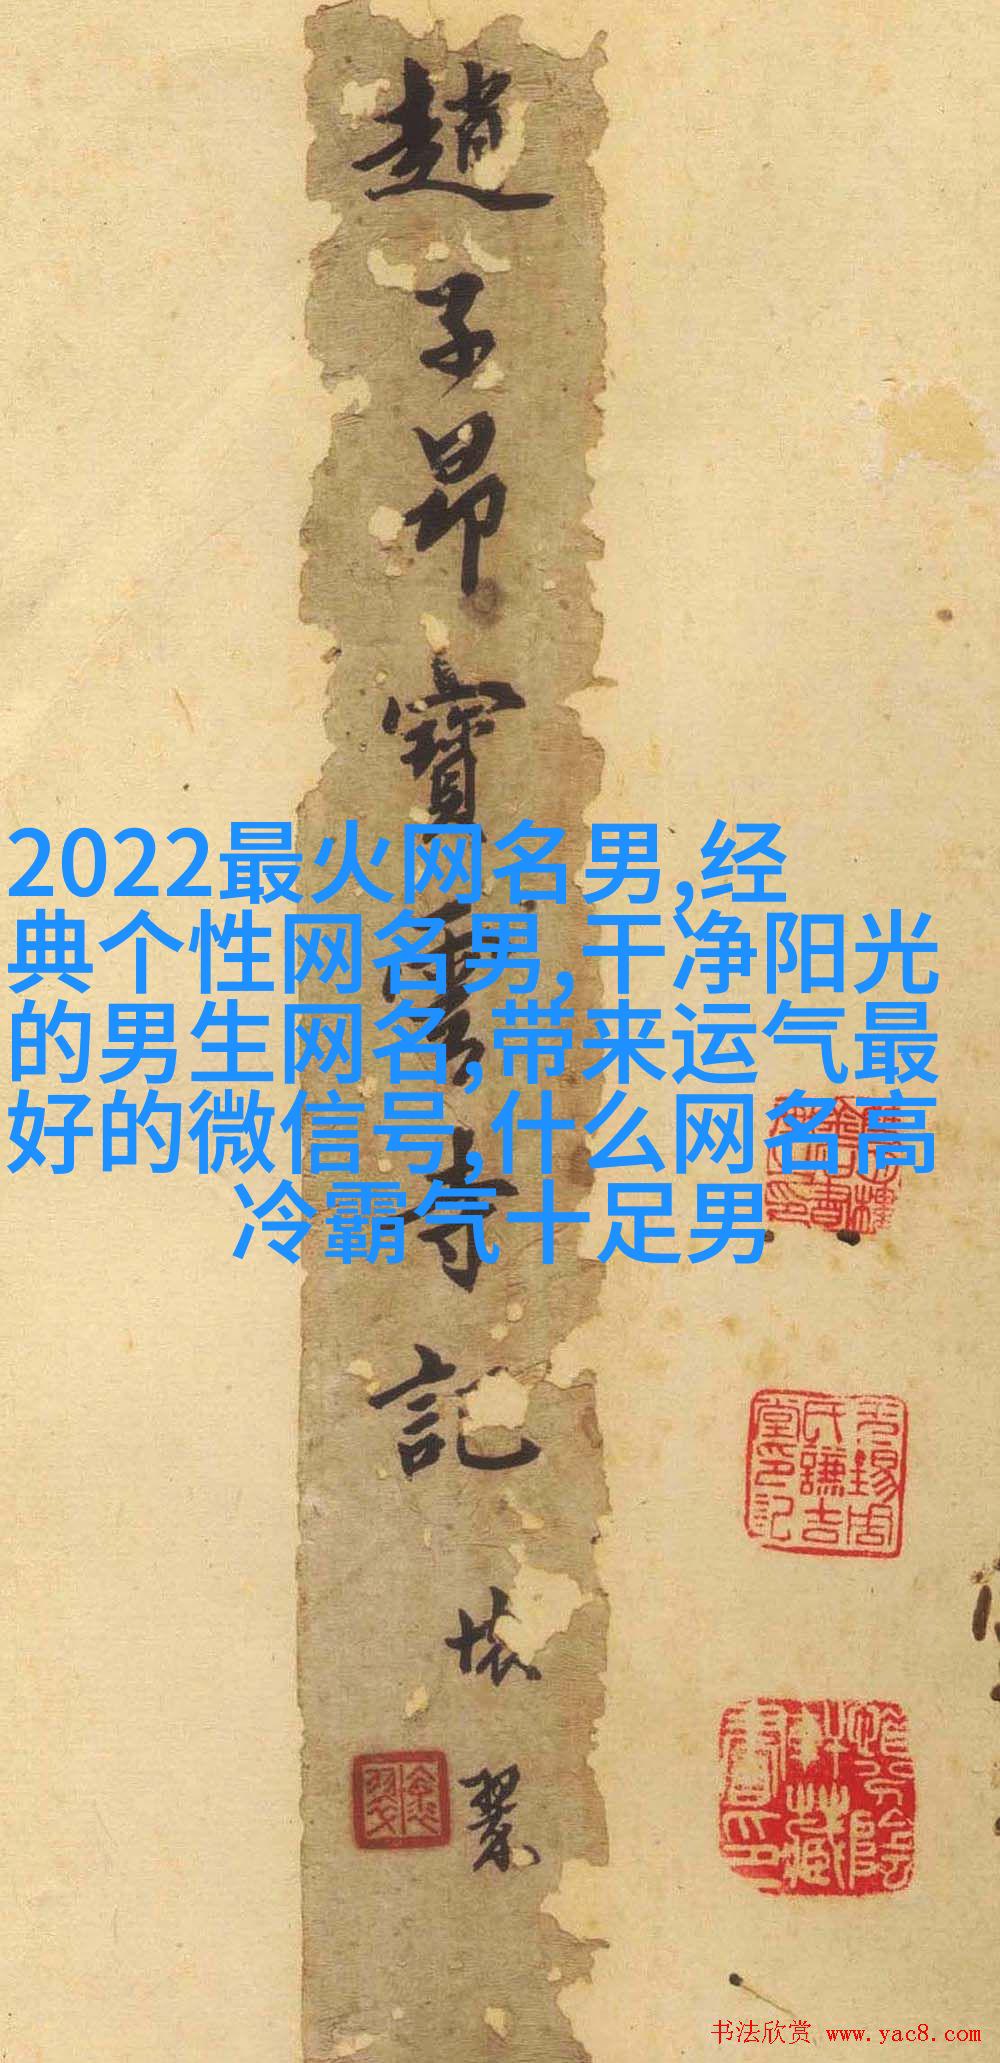 趙子昂寶雲寺記
2022最火网名男,经
典个性网名男,干净阳光
的男生网名,带来运气最
好的微信号,什么网名高
冷霸气十足男
无錫周
氏謙吉
堂印記
书法欣赏 www.yac8.com